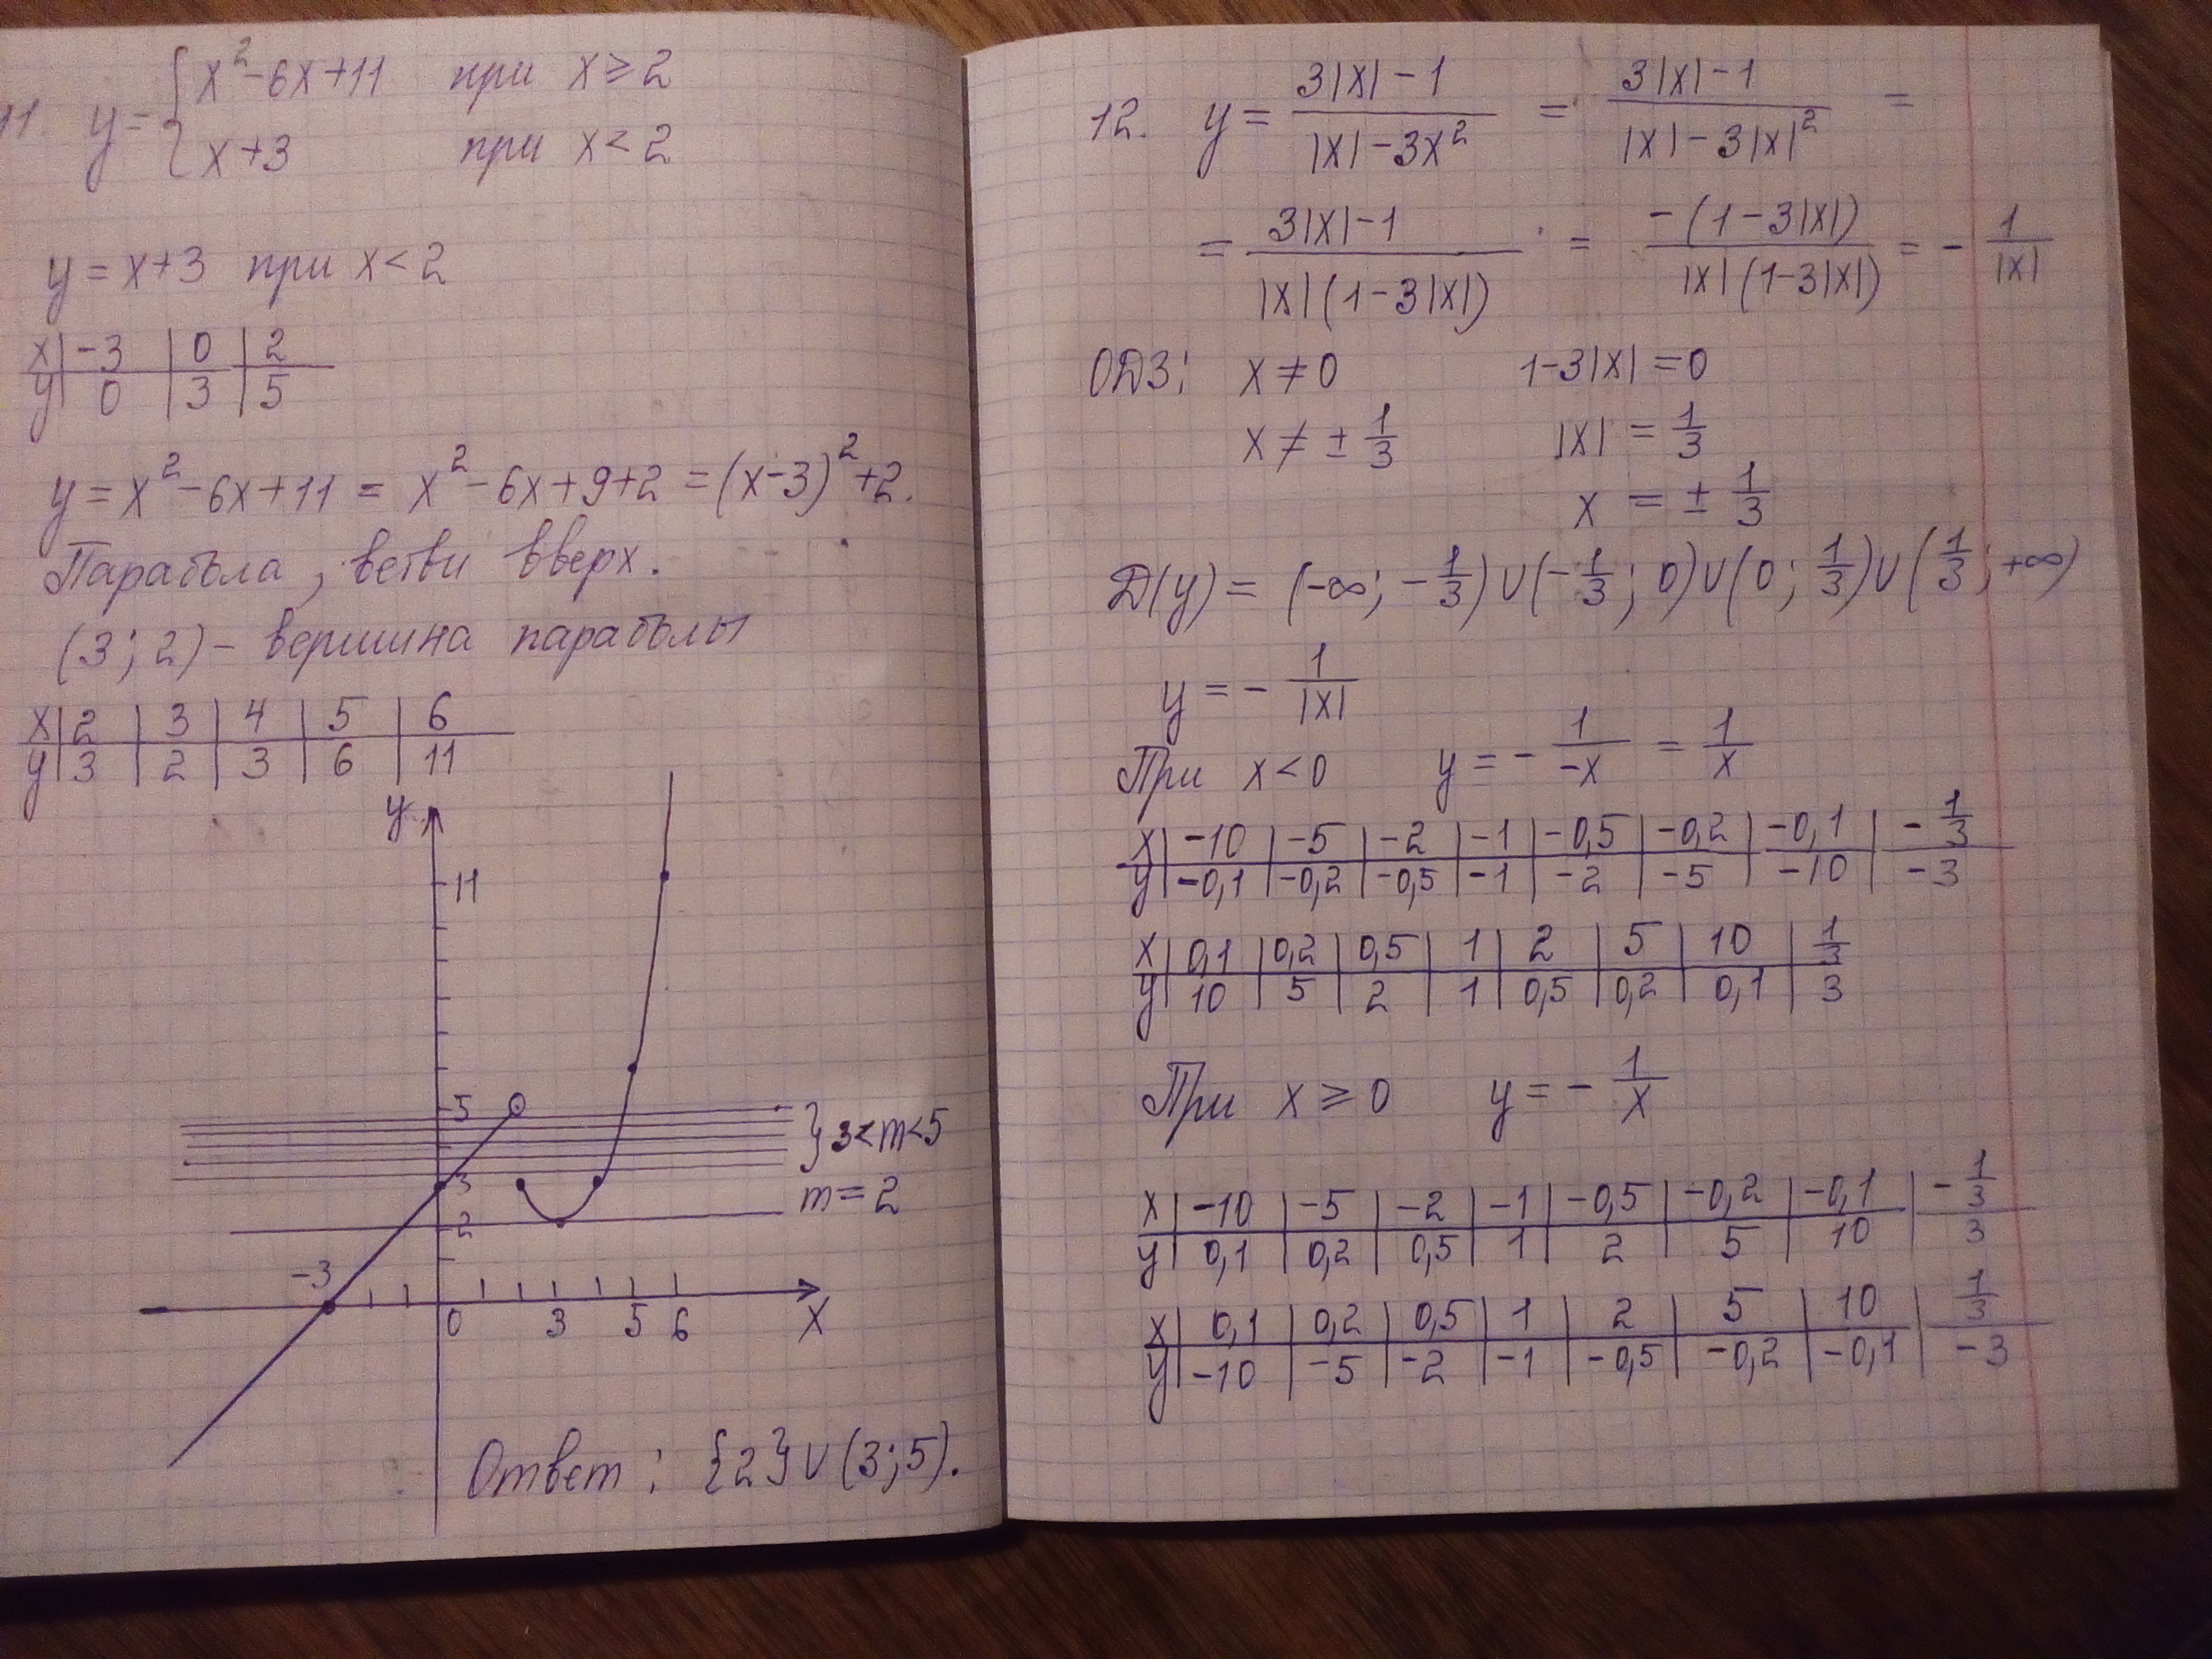 11. y = { x² - 6x + 11 при x ≥ 2
x + 3 при x < 2
y = x + 3 при x < 2
x | -3 | 0 | 2
y | 0 | 3 | 5
y = x² - 6x + 11 = x² - 6x + 9 + 2 = (x - 3)² + 2.
Парабола, ветви вверх.
(3; 2) - вершина параболы
x | 2 | 3 | 4 | 5 | 6
y | 3 | 2 | 3 | 6 | 11
y
11
5
} 3 < m < 5
3
m = 2
2
-3
0 3 5 6 X
Ответ: {2} ∪ (3; 5).
12. y = (3|x| - 1)/(|x| - 3x²) = (3|x| - 1)/(|x| - 3|x|²) =
= (3|x| - 1)/(|x|(1 - 3|x|)) = (-(1 - 3|x|))/(|x|(1 - 3|x|)) = - 1/|x|
ОДЗ: x ≠ 0 1 - 3|x| = 0
x ≠ ± 1/3 |x| = 1/3
x = ± 1/3
Д(y) = (-∞; -1/3) ∪ (-1/3; 0) ∪ (0; 1/3) ∪ (1/3; +∞)
y = - 1/|x|
При x < 0 y = - 1/-x = 1/x
x | -10 | -5 | -2 | -1 | -0,5 | -0,2 | -0,1 | -1/3
y | -0,1 | -0,2 | -0,5 | -1 | -2 | -5 | -10 | -3
x | 0,1 | 0,2 | 0,5 | 1 | 2 | 5 | 10 | 1/3
y | 10 | 5 | 2 | 1 | 0,5 | 0,2 | 0,1 | 3
При x ≥ 0 y = - 1/x
x | -10 | -5 | -2 | -1 | -0,5 | -0,2 | -0,1 | -1/3
y | 0,1 | 0,2 | 0,5 | 1 | 2 | 5 | 10 | 3
x | 0,1 | 0,2 | 0,5 | 1 | 2 | 5 | 10 | 1/3
y | -10 | -5 | -2 | -1 | -0,5 | -0,2 | -0,1 | -3